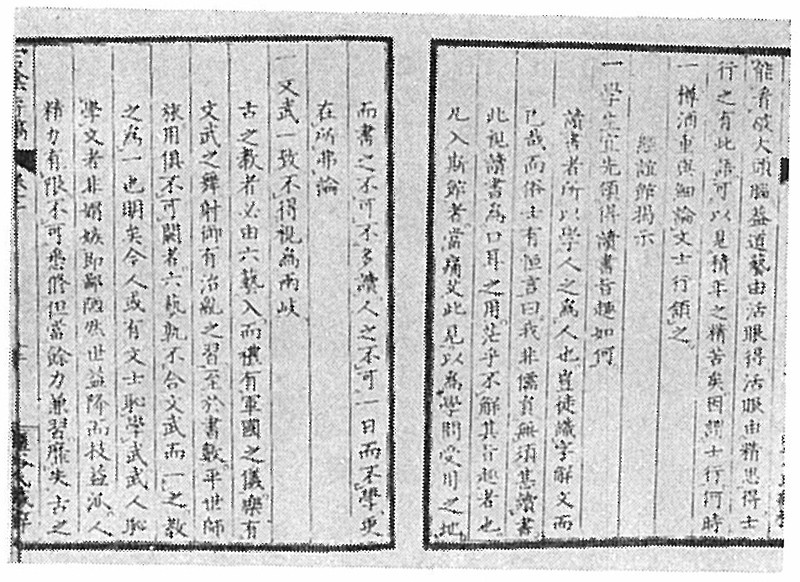 能看破大頭腦益道藝由活眼得活眼由精思得士
行之有此語可以見積年之精苦矣因謂士行何時
一樽酒重與細論文士行頷之
經誼館揭示
一學生宜先領得讀書旨趣如何
讀書者所以學人之為人也豈徒識字解文而
已哉而俗士有恒言曰我非儒員無須其讀書
此視讀書為口耳之用茫乎不解其旨趣者也
凡入斯館者當痛艾此見以為學問受用之地
而書之不可不多讀人之不可一日而不學更
在所弗論
一文武一致不得視為兩岐
古之教者必由六藝入而禮有軍國之儀樂有
文武之舞射御有治亂之習至於書數平世師
旅用俱不可闕者六藝孰不合文武而一之教
之為一也明矣今人或有文士恥學武武人恥
學文者非媢嫉即鄙陋然世益降而技益派人
精力有限不可悉修但當餘力兼習靡失古之